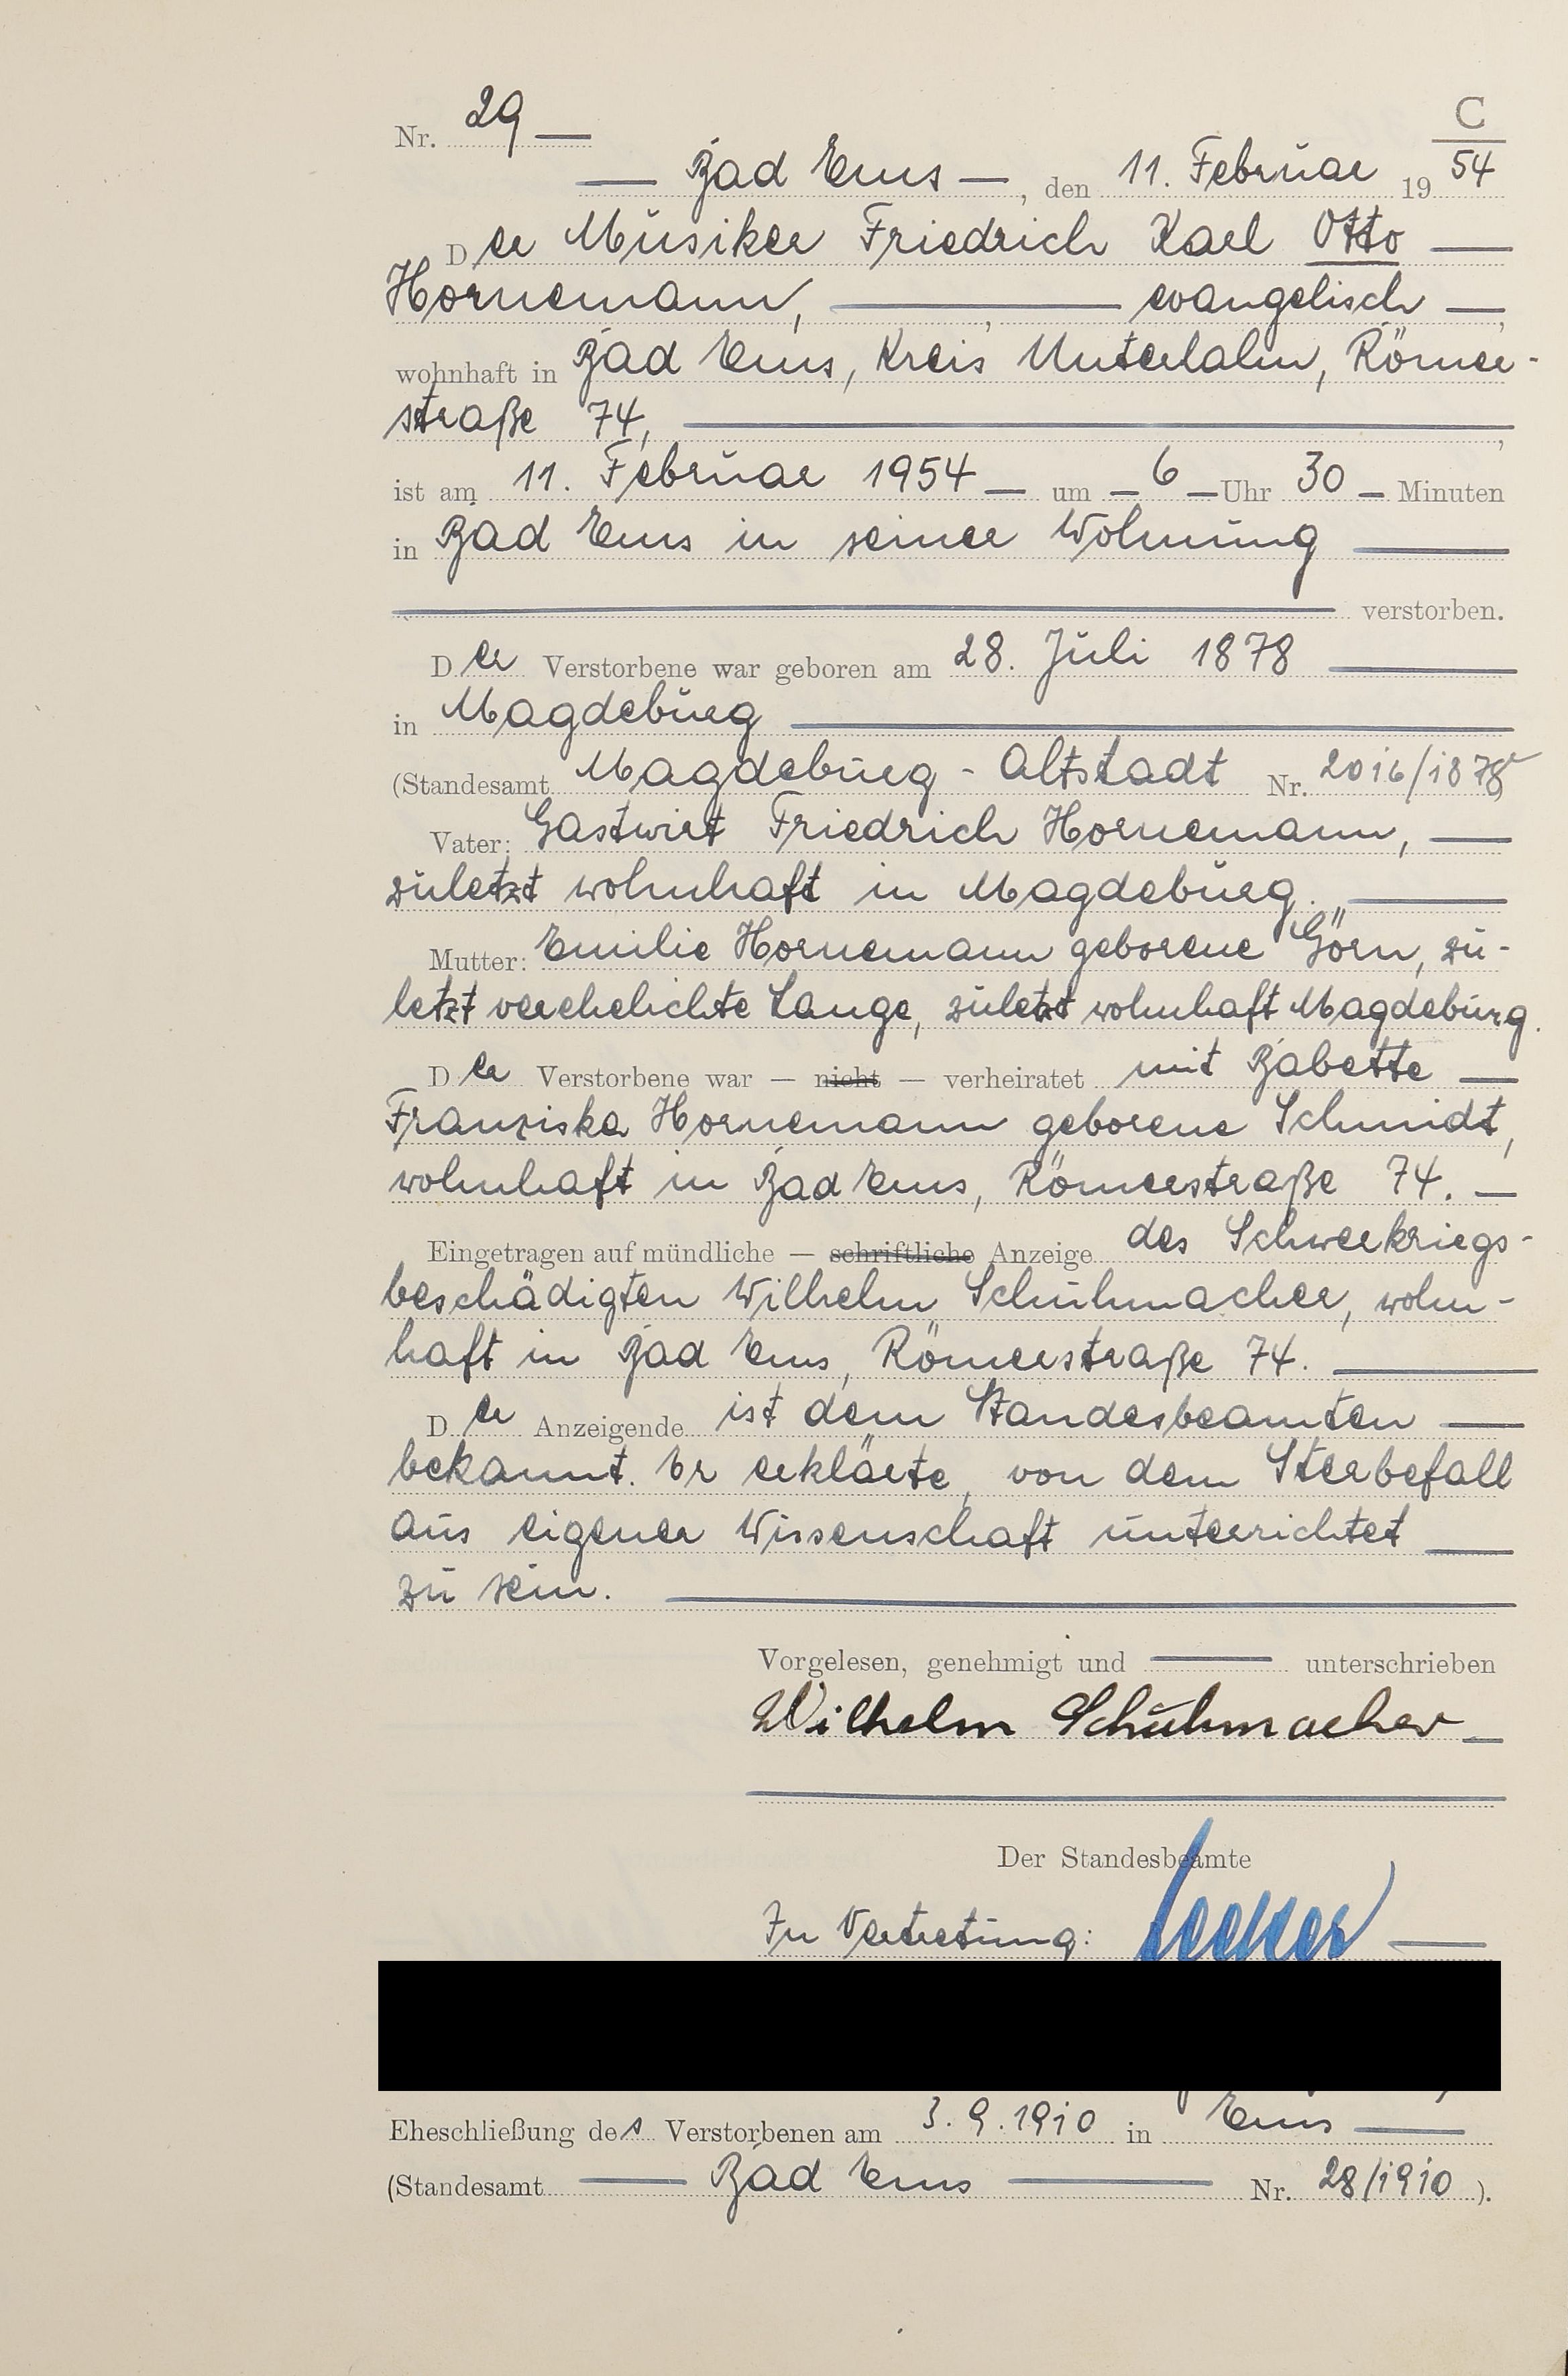 Nr. 29 —
C
— Bad Ems —, den 11. Februar 1954
Der Musiker Friedrich Karl Otto —
Hornemann, — , — evangelisch —,
wohnhaft in Bad Ems, Kreis Unterlahn, Römer-
straße 74, — ,
ist am 11. Februar 1954 — um — 6 — Uhr 30 — Minuten
in Bad Ems in seiner Wohnung —
— verstorben.
Der Verstorbene war geboren am 28. Juli 1878 —
in Magdeburg —
(Standesamt Magdeburg - Altstadt Nr. 2016/1878
Vater: Gastwirt Friedrich Hornemann, —
zuletzt wohnhaft in Magdeburg. —
Mutter: Emilie Hornemann geborene Görn, zu-
letzt verehelichte Lange, zuletzt wohnhaft Magdeburg.
Der Verstorbene war — nicht — verheiratet mit Babette —
Franziska Hornemann geborene Schmidt,
wohnhaft in Bad Ems, Römerstraße 74. —
Eingetragen auf mündliche — schriftliche Anzeige des Schwerkriegs-
beschädigten Wilhelm Schuhmacher, wohn-
haft in Bad Ems, Römerstraße 74. —
Der Anzeigende ist dem Standesbeamten —
bekannt. Er erklärte, von dem Sterbefall
aus eigener Wissenschaft unterrichtet —
zu sein. —
Vorgelesen, genehmigt und — unterschrieben
Wilhelm Schuhmacher —
Der Standesbeamte
In Vertretung: —
Eheschließung des Verstorbenen am 3.9.1910 in Ems —
(Standesamt — Bad Ems — Nr. 28/1910 ).